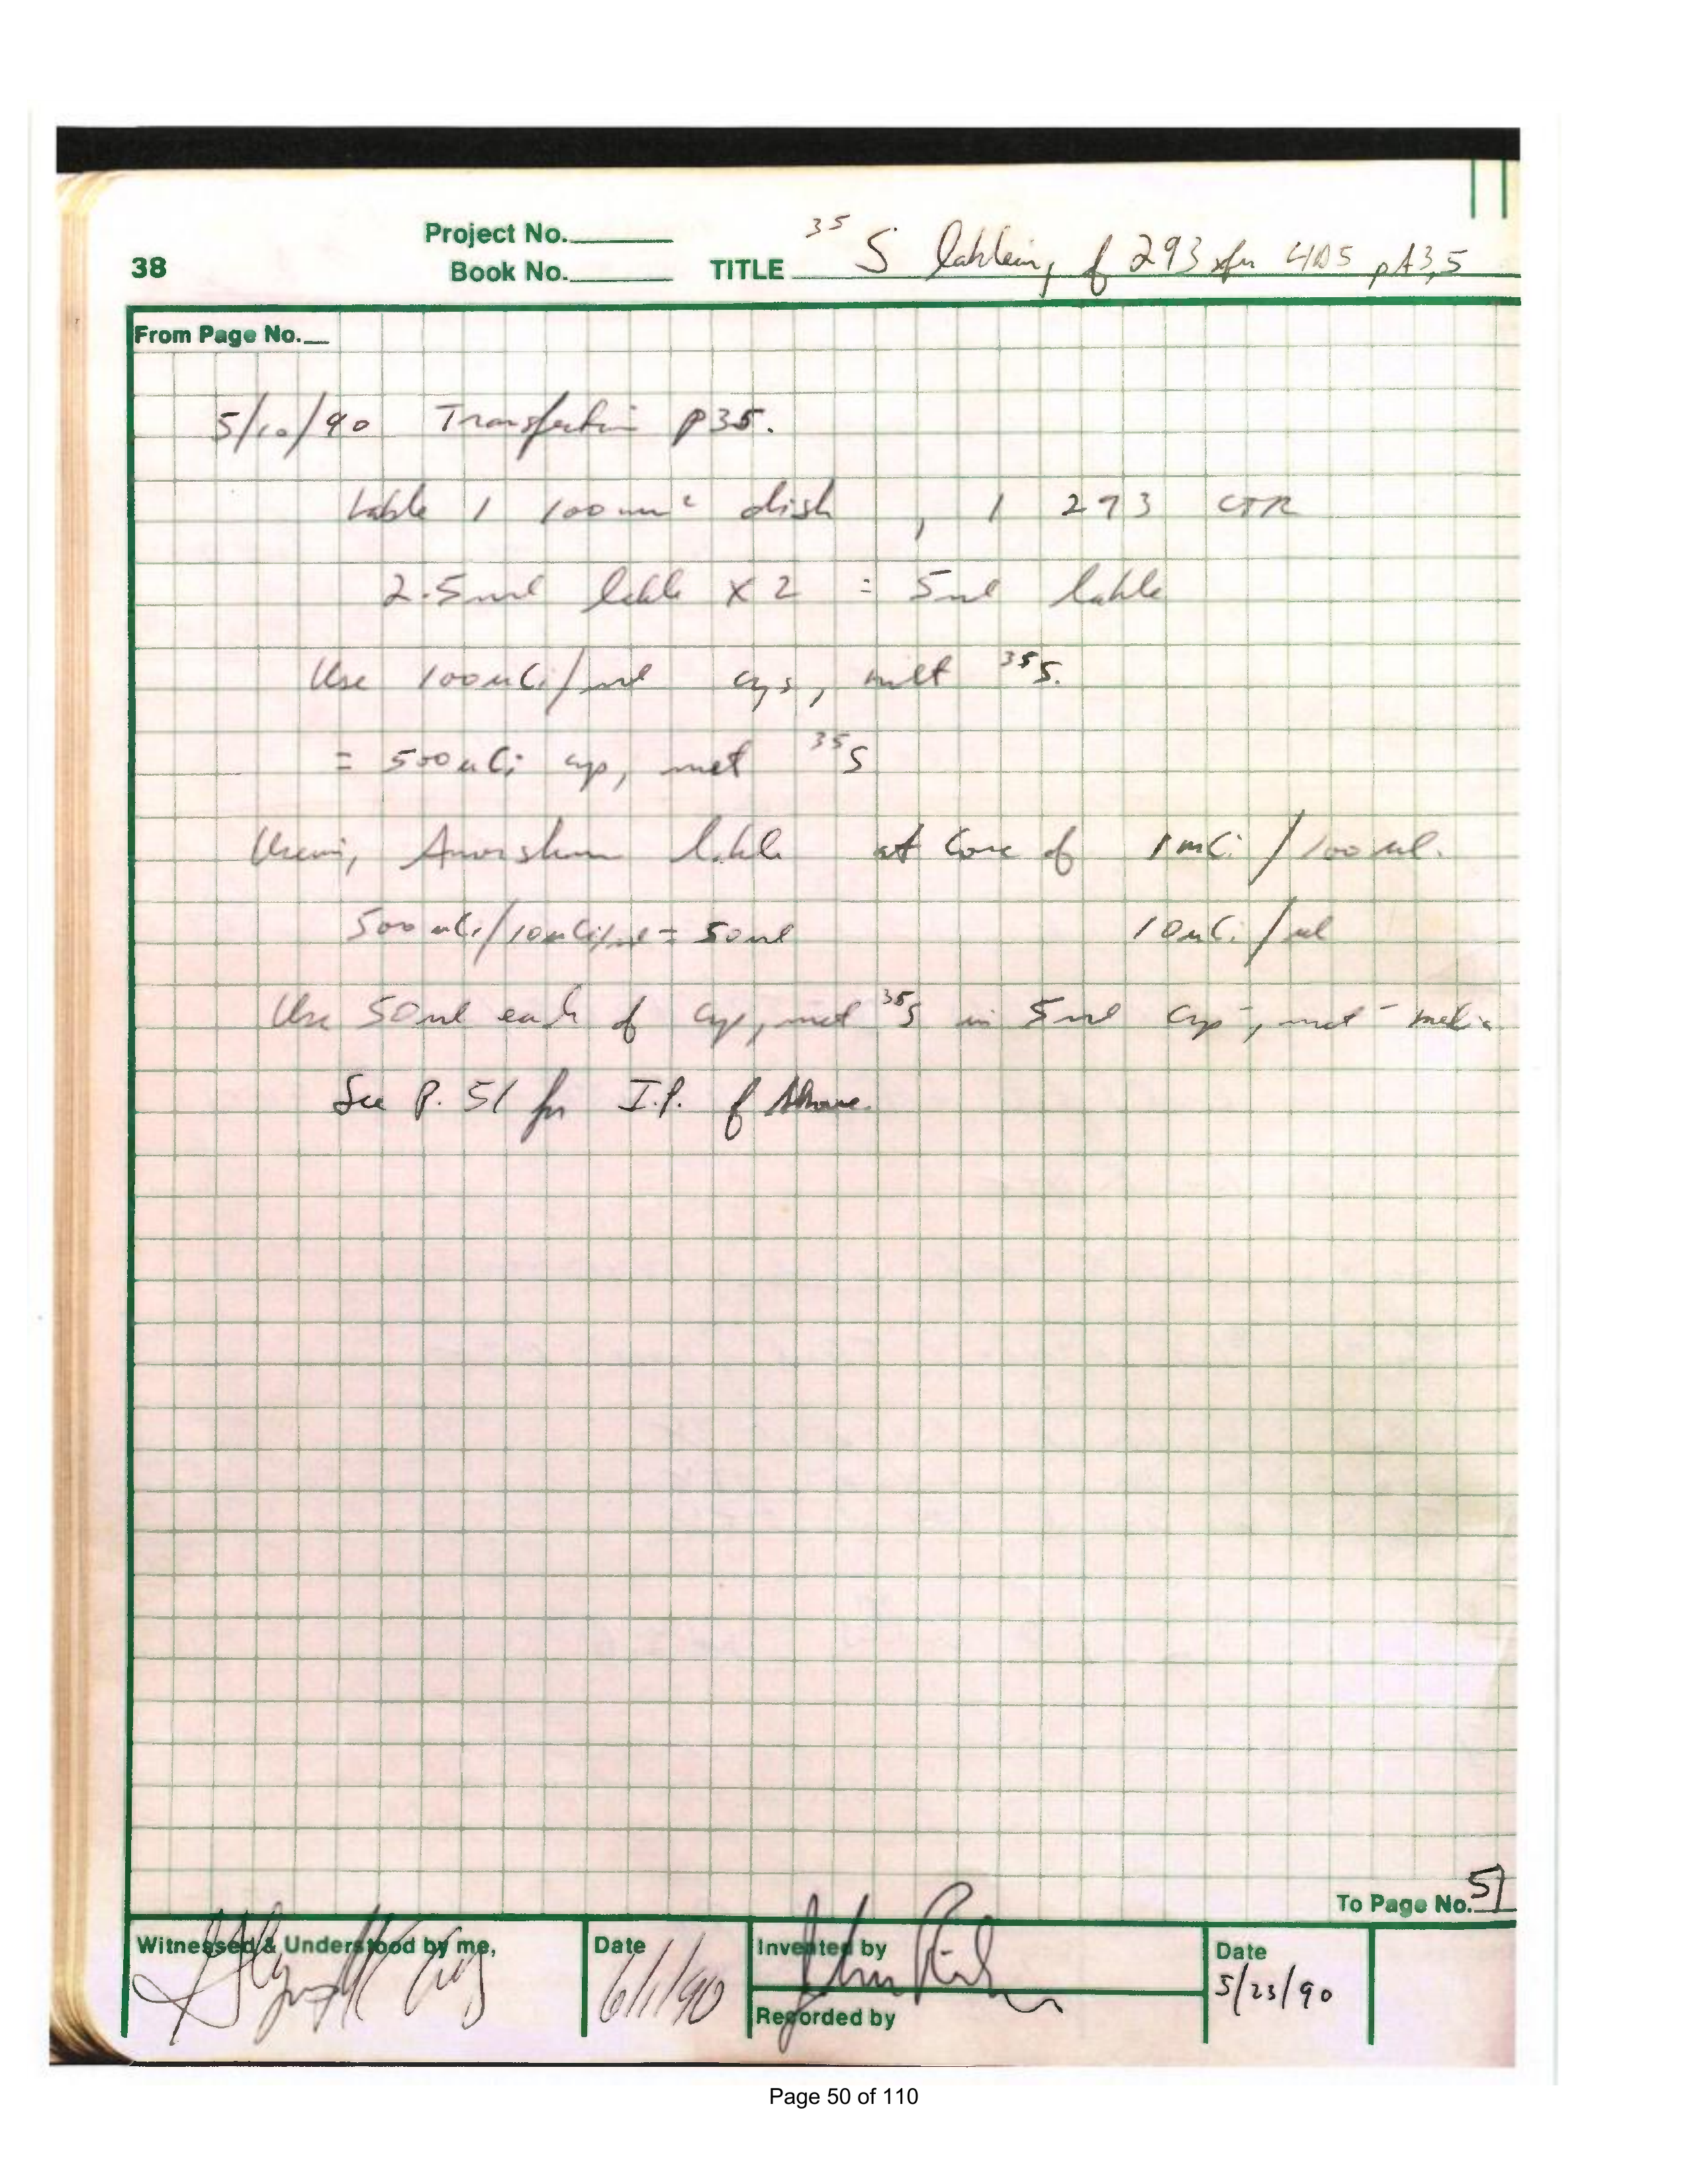 Project No.
38 Book No. TITLE 35S lableing of 293 xfn 4105 pA3,5
From Page No.
5/10/90 Transfection p35.
Lable 1 100mm² dish , 1 293 CTR
2.5ml lable x 2 = 5ml lable
Use 100uCi/ml cys, met 35S.
= 500uCi cys, met 35S
Using Amersham lable at Conc of 1mCi/100ul.
500uCi/10uCi/ul = 50ul 10uCi/ul
Use 50ul each of cys, met 35S in 5ml cys-, met- media
See P. 51 for I.P. of Above.
To Page No. 51
Witnessed & Understood by me, Date Invented by Date
6/1/90 5/23/90
Recorded by
Page 50 of 110